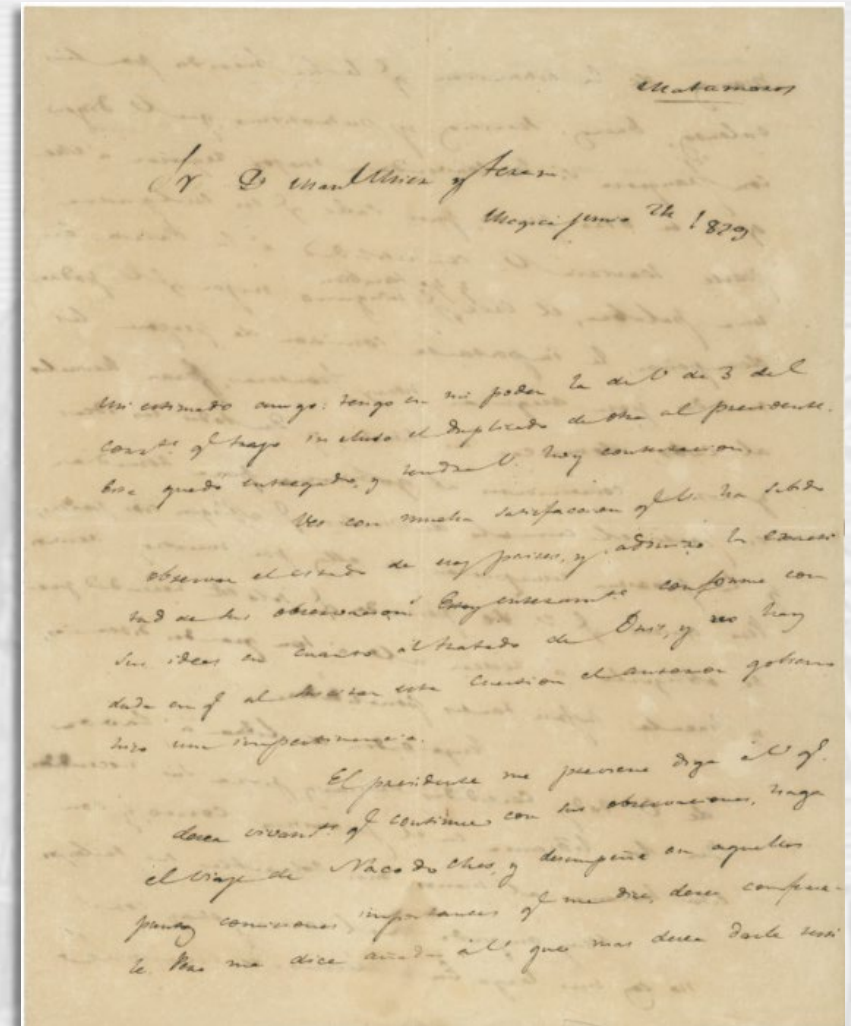 Matamoros
Sr. D. Manl Mier y Teran
Megico junio 24 1829
Mi estimado amigo: tengo en mi poder la de V de 3 del
corrte. qe trajo incluso el duplicado de otra al presidente.
Esta quedó entregada, y tendrá V. hoy contestacion.
Veo con mucha satisfaccion qe V. ha sabido
observar el estado de esos paises, y admiro la exacti
tud de sus observacions Estoy enteramte conforme con
sus ideas en cuanto al tratado de Onis, y no hay
duda en qe al esta cuestion el anterior gobierno
hizo una impertinencia.
El presidente me previene diga á V qe.
desea vivamte qe continue con sus observaciones, haga
el viage de Nacodoches, y desempeñe en aquellos
puntos comisiones importantes qe me dice, desea confiar-
le. Mas me dice añada á V. que mas desea darle